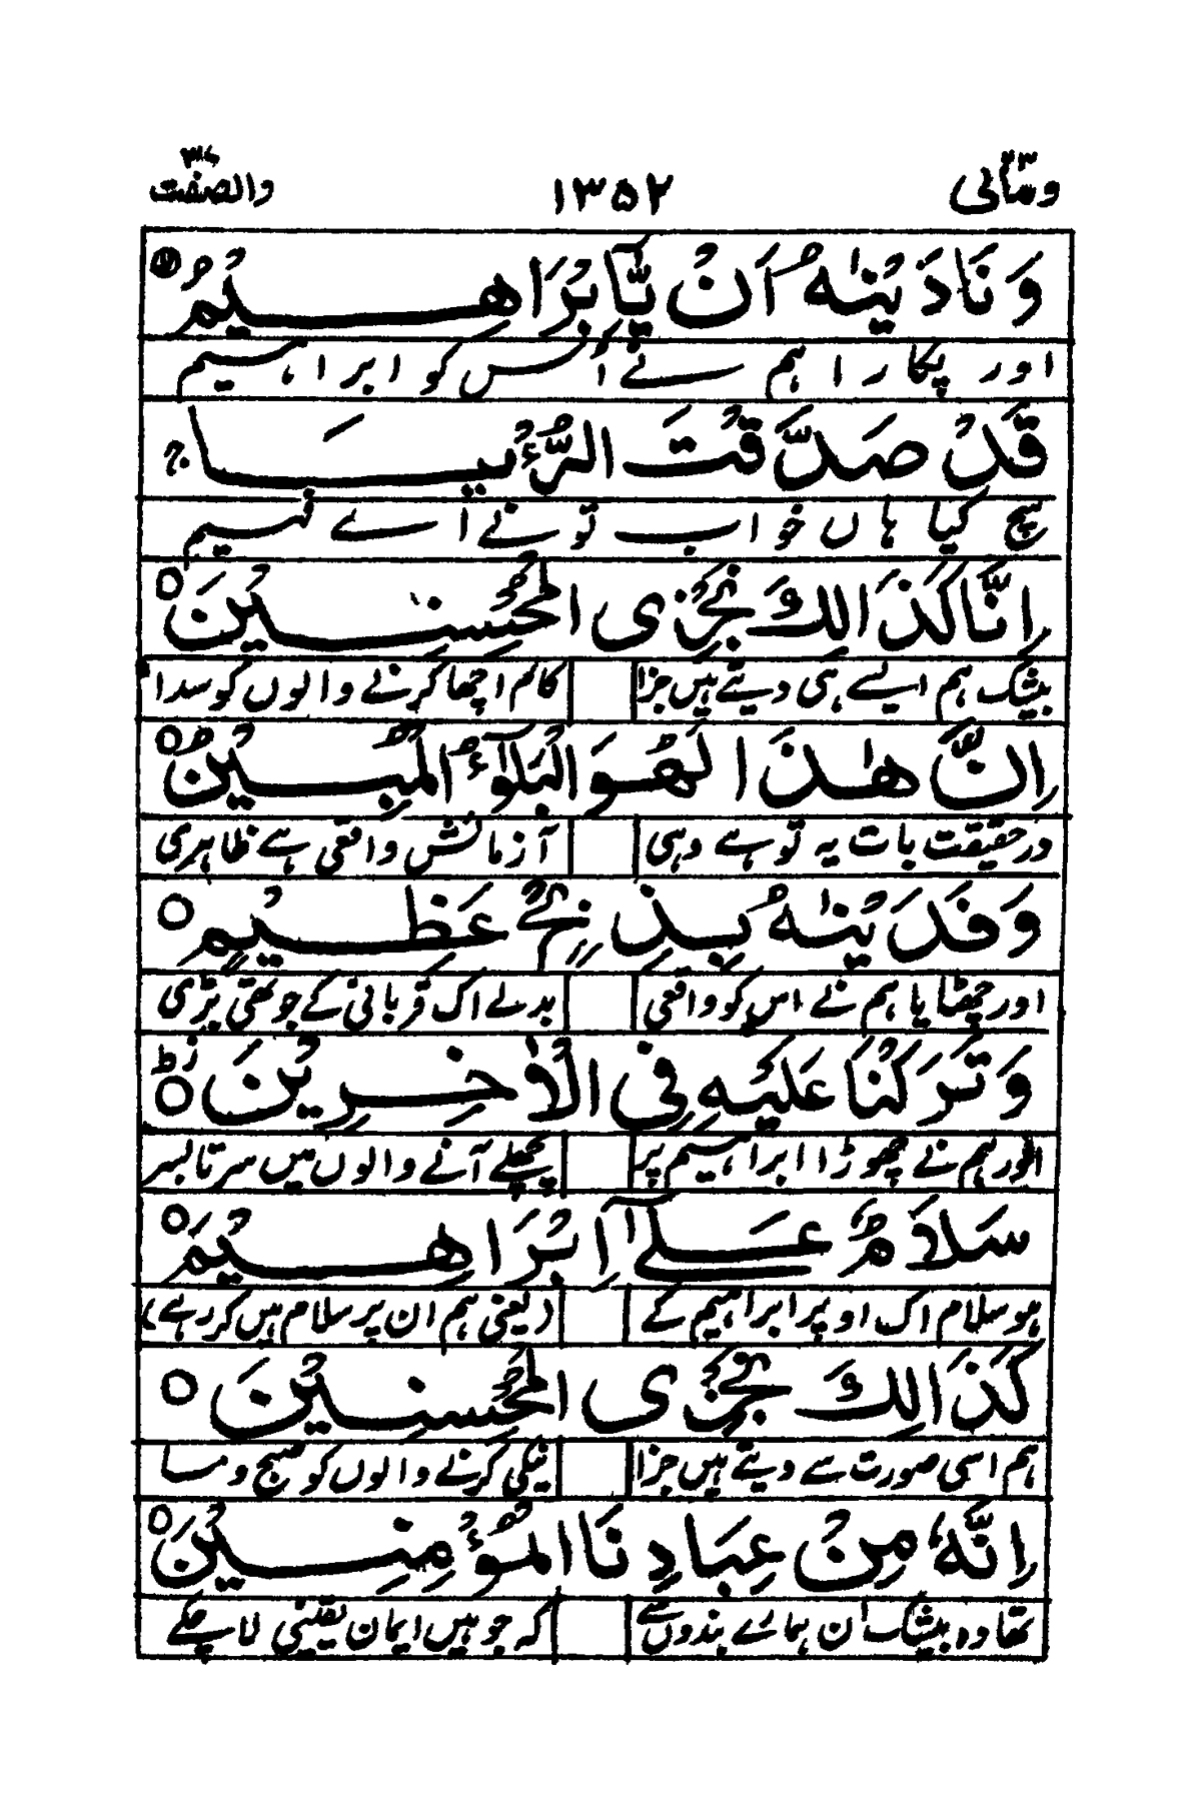 ومآلی ۲۳ ۱۳۵۲ والصفت ۳۷
وَنَادَیْنٰهُ اَنْ یَّآ بْرَاهِیْمُ
اور پکارا ہم نے اُس کو ابراہیم
قَدْ صَدَّقْتَ الرُّءْیَا ج
سچ کیا ہاں خواب تو نے اے فہیم
اِنَّا كَذَالِكَ نَجْزِی الْمُحْسِنِیْنَ ○
بیشک ہم ایسے ہی دیتے ہیں جزا کام اچھا کرنے والوں کو سدا
اِنَّ هٰذَا لَهُوَ الْبَلٰٓؤُا الْمُبِیْنُ ○
درحقیقت بات یہ تو ہے وہی آزمائش واقعی ہے ظاہری
وَفَدَیْنٰهُ بِذِبْحٍ عَظِیْمٍ ○
اور چھٹایا ہم نے اس کو واقعی بدلے اک قربانی کے جو تھی بڑی
وَتَرَكْنَا عَلَیْهِ فِی الْاٰخِرِیْنَ ○
اور ہم نے چھوڑا ابراہیم پر پچھلے آنے والوں میں سر تا بسر
سَلَامٌ عَلٰٓی اِبْرَاهِیْمَ ○
ہو سلام اک اوپر ابراہیم کے (یعنی ہم ان پر سلام ہیں کر رہے)
كَذَالِكَ نَجْزِی الْمُحْسِنِیْنَ ○
ہم اسی صورت سے دیتے ہیں جزا نیکی کرنے والوں کو صبح و مسا
اِنَّهٗ مِنْ عِبَادِنَا الْمُؤْمِنِیْنَ ○
تھا وہ بیشک اُن ہمارے بندوں سے کہ جو ہیں ایمان یقینی لا چکے